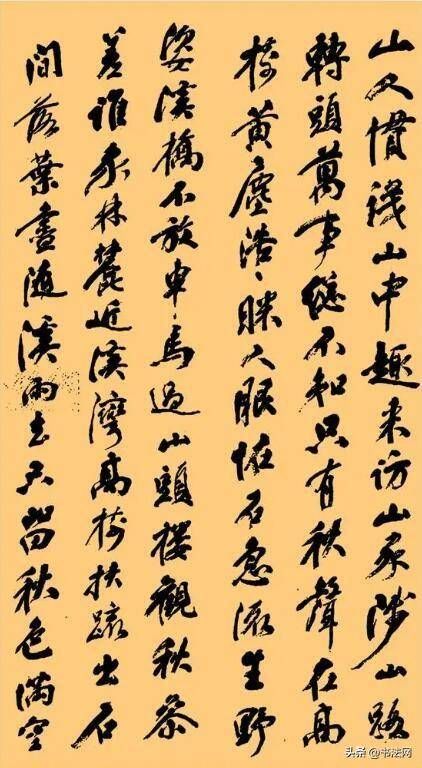 山人慣識山中趣来訪山家涉山路
轉頭萬事總不知只有秋聲在高
樹黄塵浩〻眯人眼怪石急流生野
姿溪橋不放車馬過山頭樓觀秋參
差誰家林麓近溪灣高樹扶疎出石
間落葉盡隨溪雨去只留秋色滿空
头条 @书法网